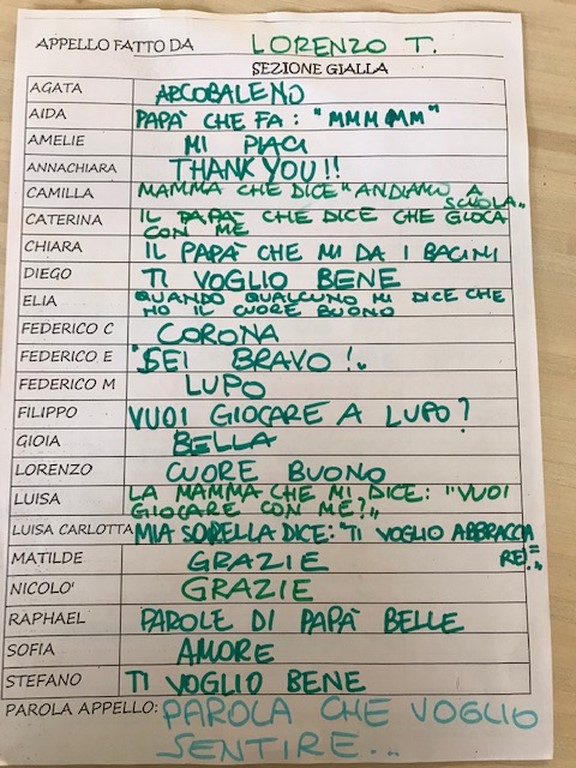 APPELLO FATTO DA LORENZO T.
SEZIONE GIALLA
AGATA ARCOBALENO
AIDA PAPÀ CHE FA: "MMMMMM"
AMELIE MI PIACI
ANNACHIARA THANK YOU!!
CAMILLA MAMMA CHE DICE "ANDIAMO A
SCUOLA"
CATERINA IL PAPÀ CHE DICE CHE GIOCA
CON ME
CHIARA IL PAPÀ CHE MI DA I BACINI
DIEGO TI VOGLIO BENE
ELIA QUANDO QUALCUNO MI DICE CHE
HO IL CUORE BUONO
FEDERICO C CORONA
FEDERICO E "SEI BRAVO!"
FEDERICO M LUPO
FILIPPO VUOI GIOCARE A LUPO?
GIOIA BELLA
LORENZO CUORE BUONO
LUISA LA MAMMA CHE MI DICE: "VUOI
GIOCARE CON ME?"
LUISA CARLOTTA MIA SORELLA DICE: "TI VOGLIO ABBRACCIA
RE!"
MATILDE GRAZIE
NICOLO' GRAZIE
RAPHAEL PAROLE DI PAPÀ BELLE
SOFIA AMORE
STEFANO TI VOGLIO BENE
PAROLA APPELLO: PAROLA CHE VOGLIO
SENTIRE...